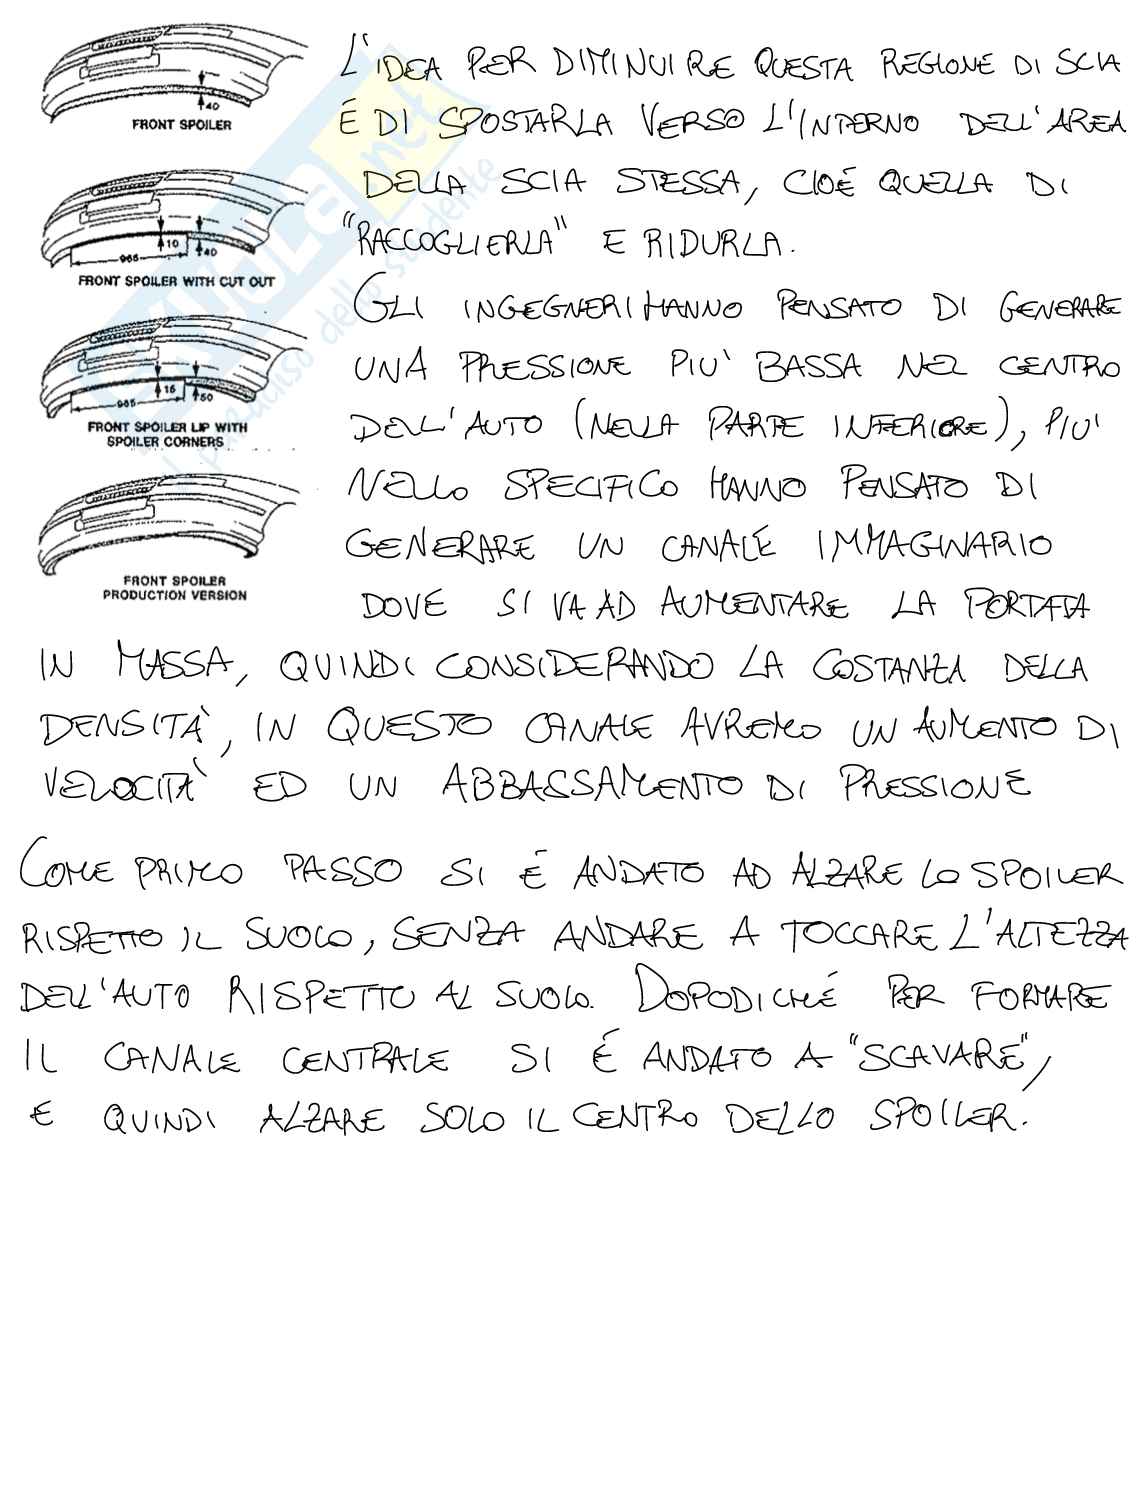 40
FRONT SPOILER
10
40
965
FRONT SPOILER WITH CUT OUT
15
50
965
FRONT SPOILER LIP WITH
SPOILER CORNERS
FRONT SPOILER
PRODUCTION VERSION
L'IDEA PER DIMINUIRE QUESTA REGIONE DI SCIA
É DI SPOSTARLA VERSO L'INTERNO DELL'AREA
DELLA SCIA STESSA, CIOÉ QUELLA DI
"RACCOGLIERLA" E RIDURLA.
GLI INGEGNERI HANNO PENSATO DI GENERARE
UNA PRESSIONE PIU' BASSA NEL CENTRO
DELL'AUTO (NELLA PARTE INFERIORE), PIU'
NELLO SPECIFICO HANNO PENSATO DI
GENERARE UN CANALE IMMAGINARIO
DOVE SI VA AD AUMENTARE LA PORTATA
IN MASSA, QUINDI CONSIDERANDO LA COSTANZA DELLA
DENSITÀ, IN QUESTO CANALE AVREMO UN AUMENTO DI
VELOCITÀ ED UN ABBASSAMENTO DI PRESSIONE
COME PRIMO PASSO SI É ANDATO AD ALZARE LO SPOILER
RISPETTO IL SUOLO, SENZA ANDARE A TOCCARE L'ALTEZZA
DELL'AUTO RISPETTO AL SUOLO. DOPODICHÉ PER FORMARE
IL CANALE CENTRALE SI É ANDATO A "SCAVARE",
E QUINDI ALZARE SOLO IL CENTRO DELLO SPOILER.